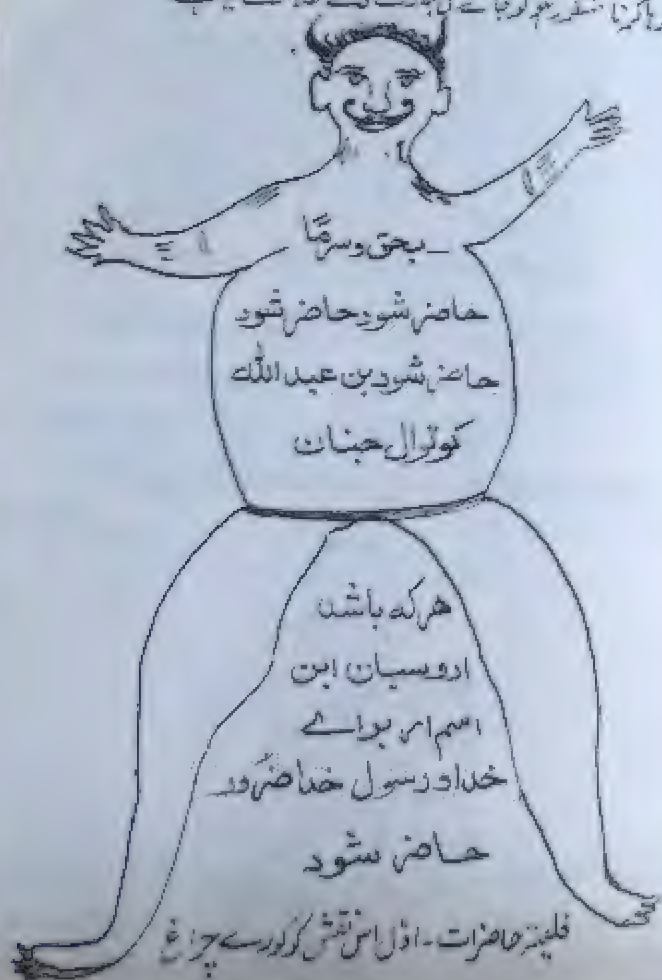 بحق وسرما
حاضر شود حاضر شود
حاضر شود بن عبد الله
کوتوال جنان
هرکه باشد
اروسیان ابن
اسم ام براے
خدا ورسول خدا ضرور
حاضر شود
فلیتہ حاضرات - اوّل اس نقش کو کورے چراغ